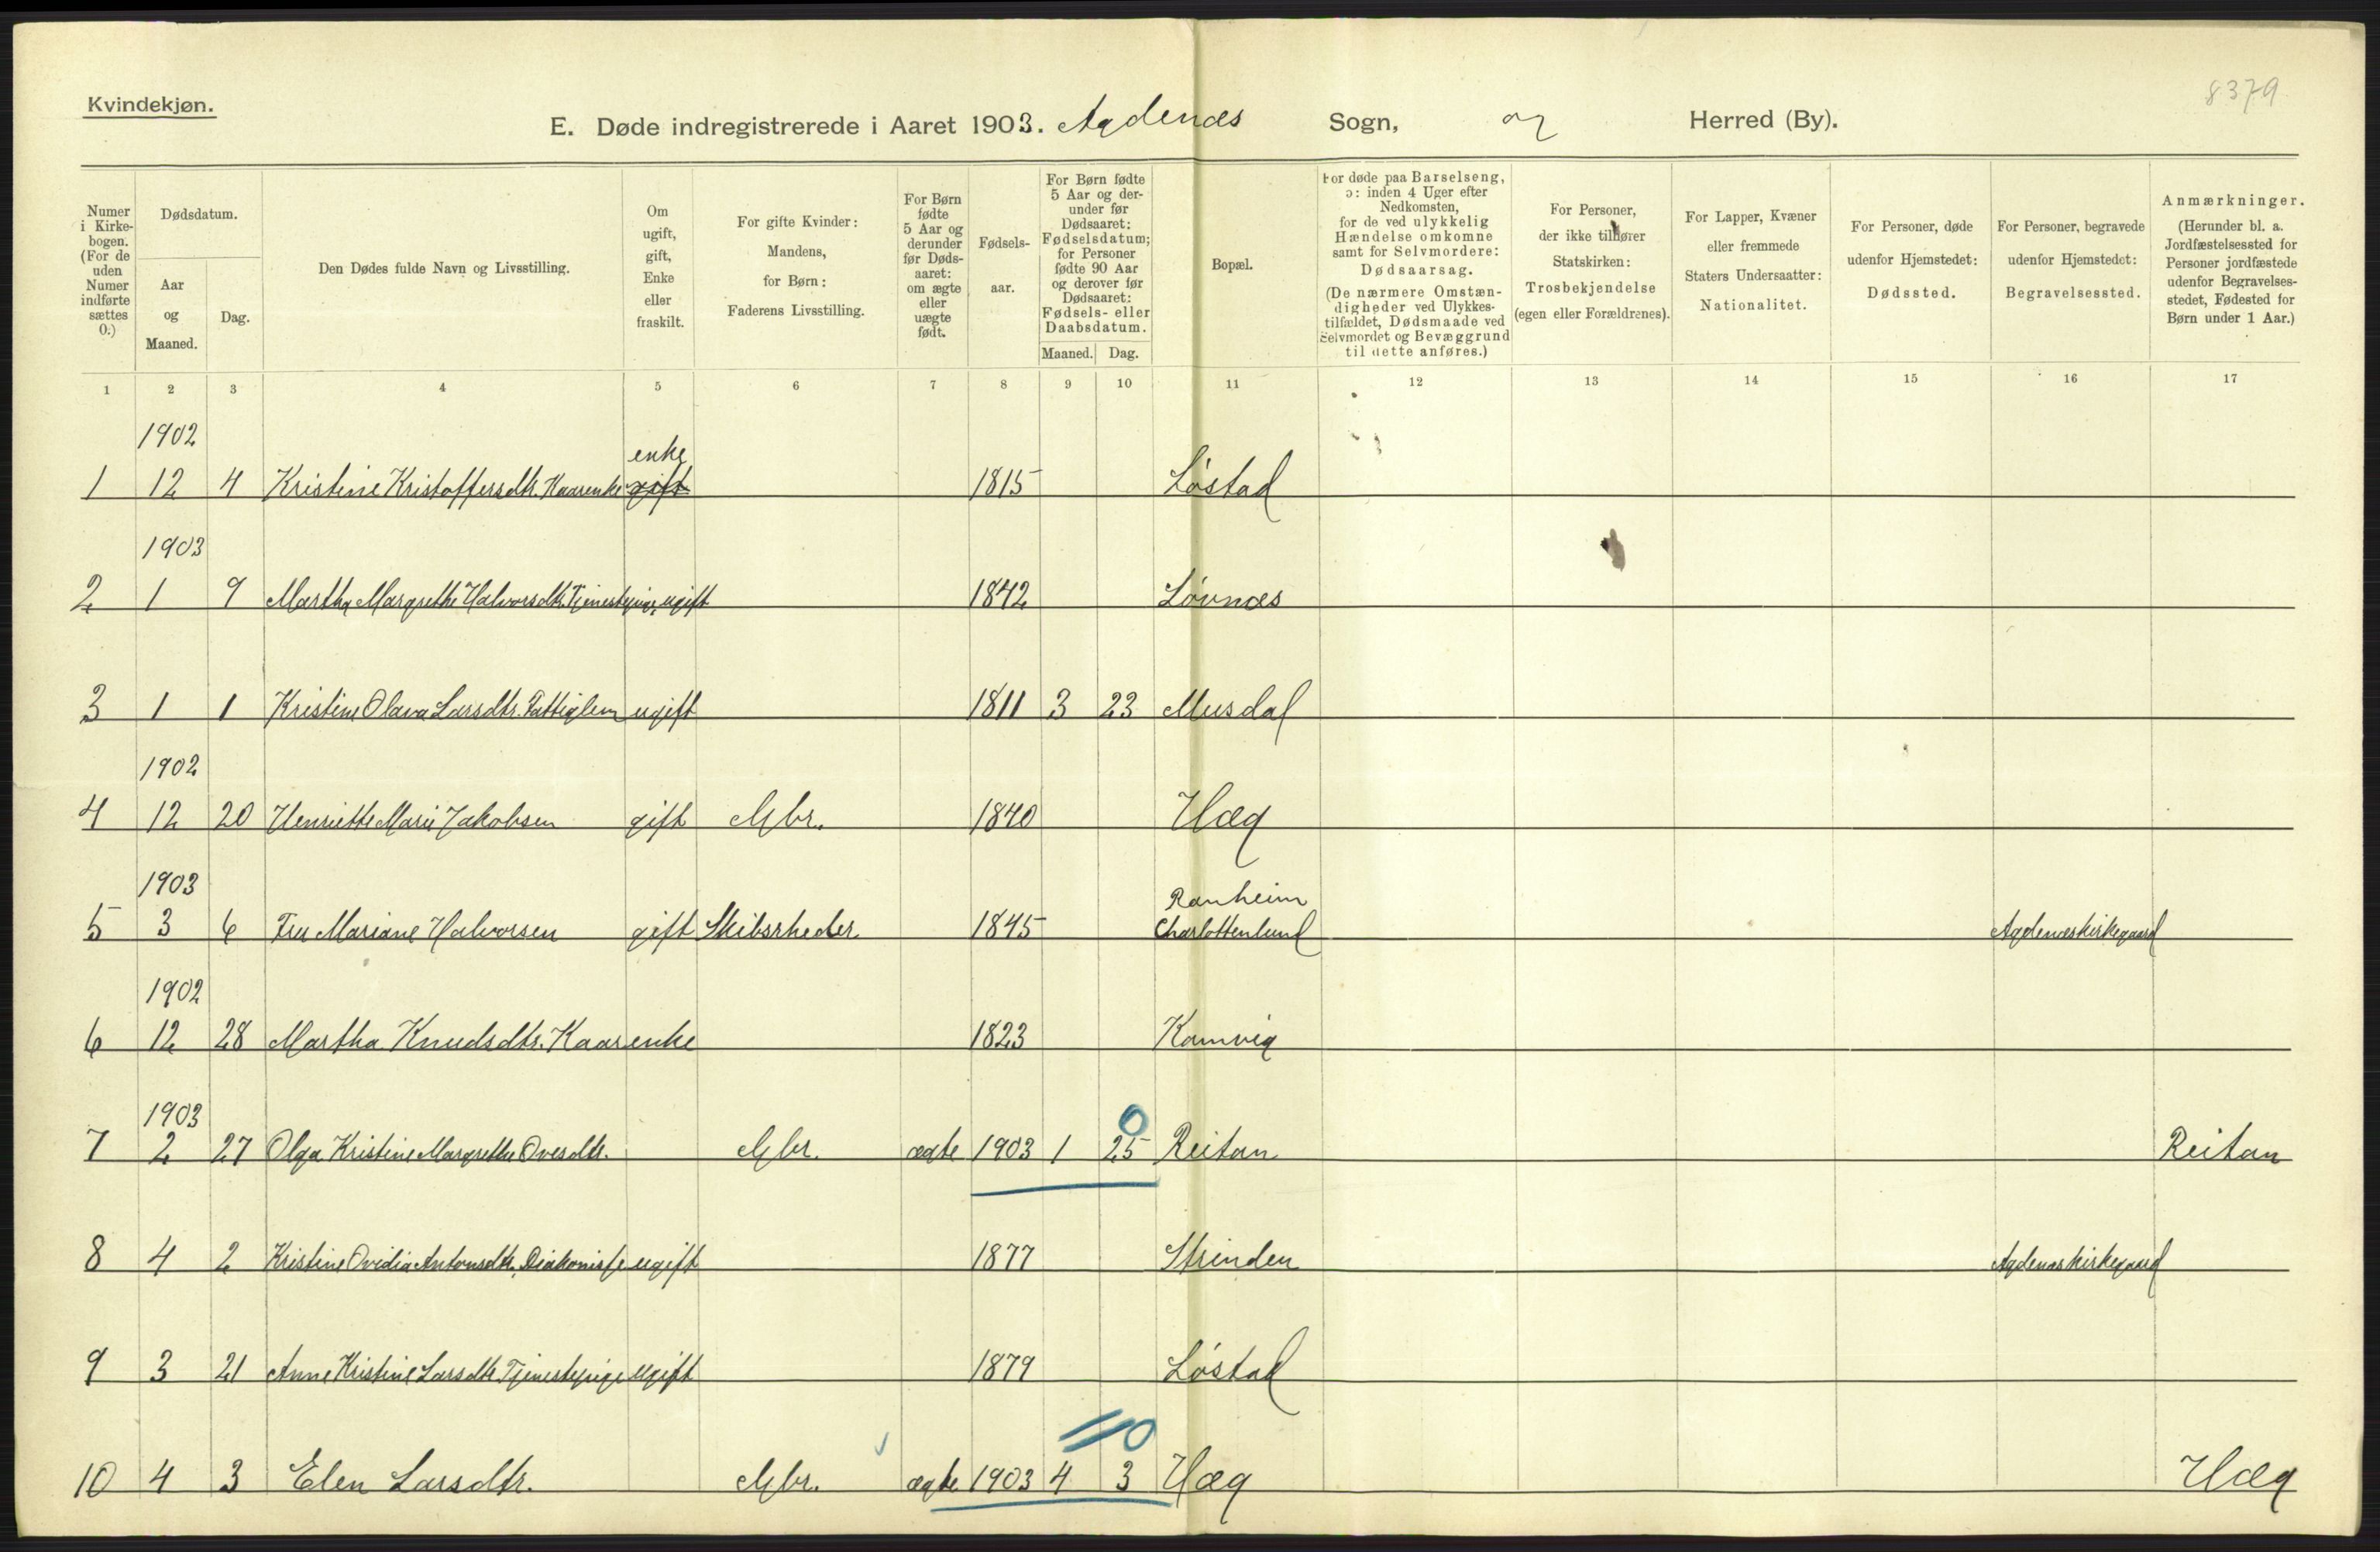 8379
Kvindekjøn.
E. Døde indregistrerede i Aaret 1903. Agdenæs Sogn, og Herred (By).
Numer i Kirkebogen. (For de uden Numer indførte sættes 0.)
Dødsdatum.
Aar og Maaned.
Dag.
Den Dødes fulde Navn og Livsstilling.
Om ugift, gift, Enke eller fraskilt.
For gifte Kvinder: Mandens, for Børn: Faderens Livsstilling.
For Børn fødte 5 Aar og derunder før Dødsaaret: om ægte eller uægte født.
Fødselsaar.
For Børn fødte 5 Aar og derunder før Dødsaaret: Fødselsdatum; for Personer fødte 90 Aar og derover før Dødsaaret: Fødsels- eller Daabsdatum.
Maaned. Dag.
Bopæl.
For døde paa Barselseng, ɔ: inden 4 Uger efter Nedkomsten, for de ved ulykkelig Hændelse omkomne samt for Selvmordere: Dødsaarsag. (De nærmere Omstændigheder ved Ulykkestilfældet, Dødsmaade ved Selvmordet og Bevæggrund til dette anføres.)
For Personer, der ikke tilhører Statskirken: Trosbekjendelse (egen eller Forældrenes).
For Lapper, Kvæner eller fremmede Staters Undersaatter: Nationalitet.
For Personer, døde udenfor Hjemstedet: Dødssted.
For Personer, begravede udenfor Hjemstedet: Begravelsessted.
Anmærkninger. (Herunder bl. a. Jordfæstelsessted for Personer jordfæstede udenfor Begravelsesstedet, Fødested for Børn under 1 Aar.)
1 2 3 4 5 6 7 8 9 10 11 12 13 14 15 16 17
1902 enke
1 12 4 Kristine Kristoffersdtr. Kaarenke gift 1815 Løstad
1903
2 1 9 Martha Margrethe Halvorsdtr. Tjenestepige ugift 1842 Løvnæs
3 1 1 Kristine Olava Larsdtr. Fattiglem ugift 1811 3 23 Musdal
1902
4 12 20 Henriette Marie Jakobsen gift Gbr. 1840 Hæg
1903 Ranheim
5 3 6 Fru Mariane Halvorsen gift Skibsrheder 1845 Charlottenlund Agdenæs kirkegaard
1902
6 12 28 Martha Knudsdtr. Kaar enke 1823 Kamvig
1903 0
7 2 27 Olga Kristine Margrethe Ovesdtr. Gbr. ægte 1903 1 25 Reitan Reitan
8 4 2 Kristine Ovidia Antonsdtr. Diakonisse ugift 1877 Strinden Agdenæs kirkegaard
9 3 21 Anne Kristine Larsdtr. Tjenestepige ugift 1879 Løstad
0
10 4 3 Elen Larsdtr. Gbr. ægte 1903 4 3 Hæg Hæg